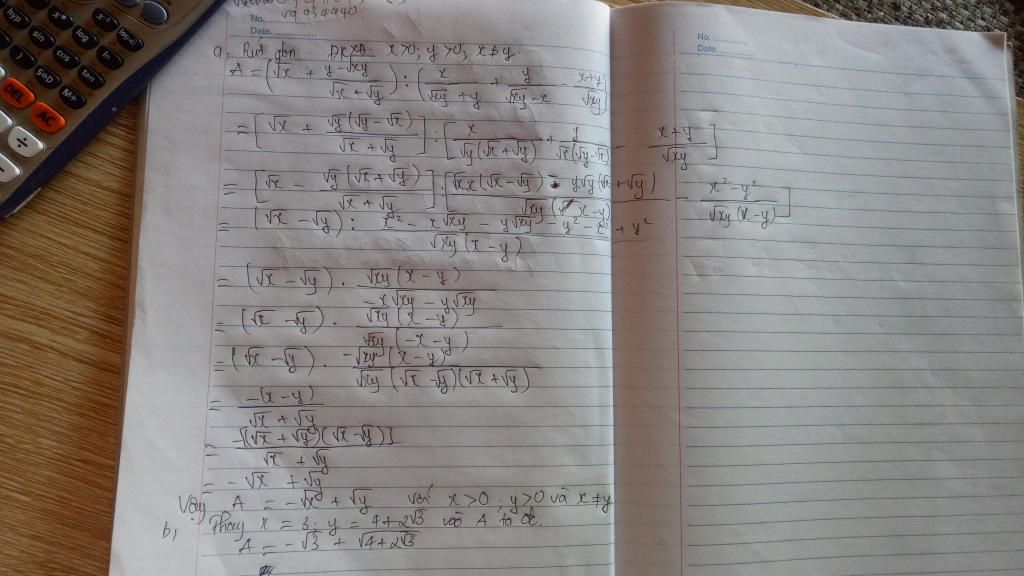 hyp
sin
cos
tan
log
ln
x⁻¹
7
SOD
M+
DEL
AC
÷
No.
Date.
No.
Date.
a, Rút gọn ĐKXĐ: x>0, y>0, x≠y.
A = (√x + (y-√xy)/(√x+√y)) : (x/(√xy+y) + y/(√xy-x) - (x+y)/√xy)
= [√x + √y(√y-√x)/(√x+√y)] : [x/(√y(√x+√y)) + y/(√x(√y-√x)) - (x+y)/√xy]
= [√x - √y(√x+√y)/(√x+√y)] : [√x x(√x-√y) - y√y(√x+√y)/(√xy(x-y)) - (x²-y²)/(√xy(x-y))]
= (√x-√y) : (x² - x√xy - y√xy - y² - x² + y²)/(√xy(x-y))
= (√x-√y) · √xy(x-y)/(-x√xy-y√xy)
= (√x-√y) · √xy(x-y)/(√xy(-x-y))
= (√x-√y) · -√xy(x-y)/(√xy(√x-√y)(√x+√y))
= -(x-y)/(√x+√y)
= -[(√x+√y)(√x-√y)]/(√x+√y)
= -√x + √y
Vậy A = -√x + √y với x>0; y>0 và x≠y
b, Thay x = 3; y = 4+2√3 vào A ta đc.
A = -√3 + √4+2√3